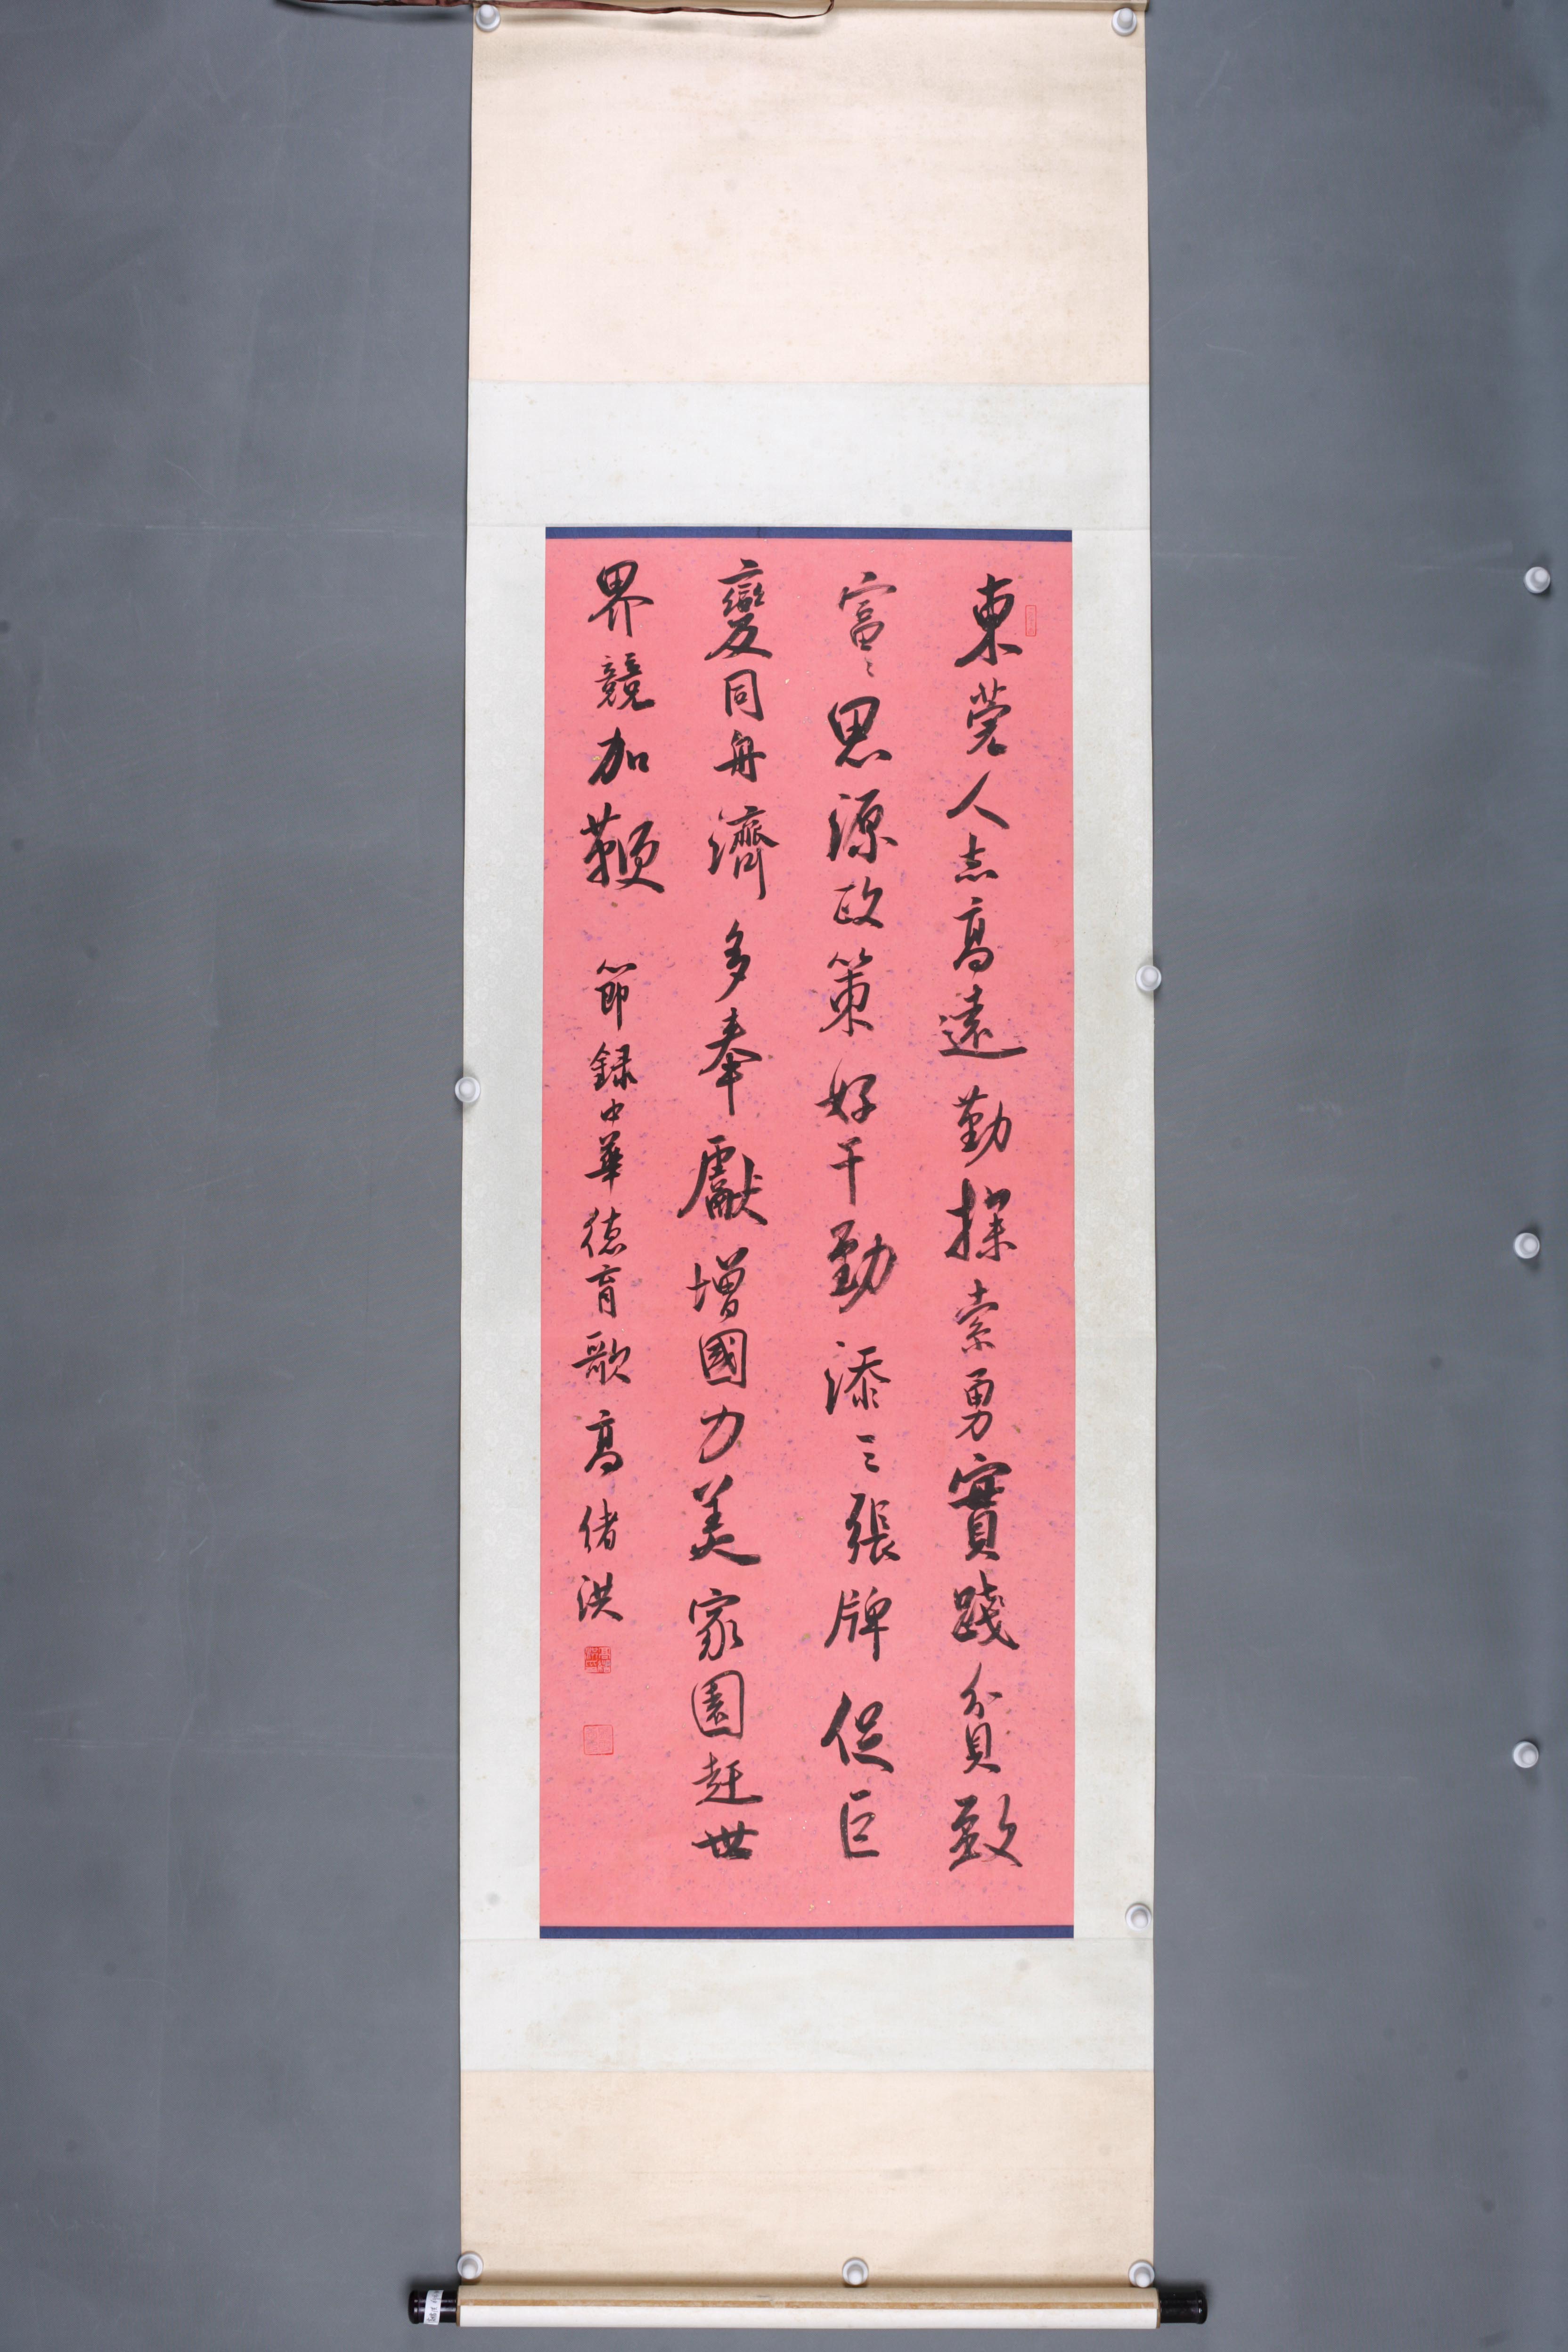 東莞人志高遠勤探索勇實踐貧致
富〻思源政策好干勁添三張牌促巨
變同舟濟多奉獻增國力美家園赶世
界競加鞭 節録中華德育歌 高绪洪